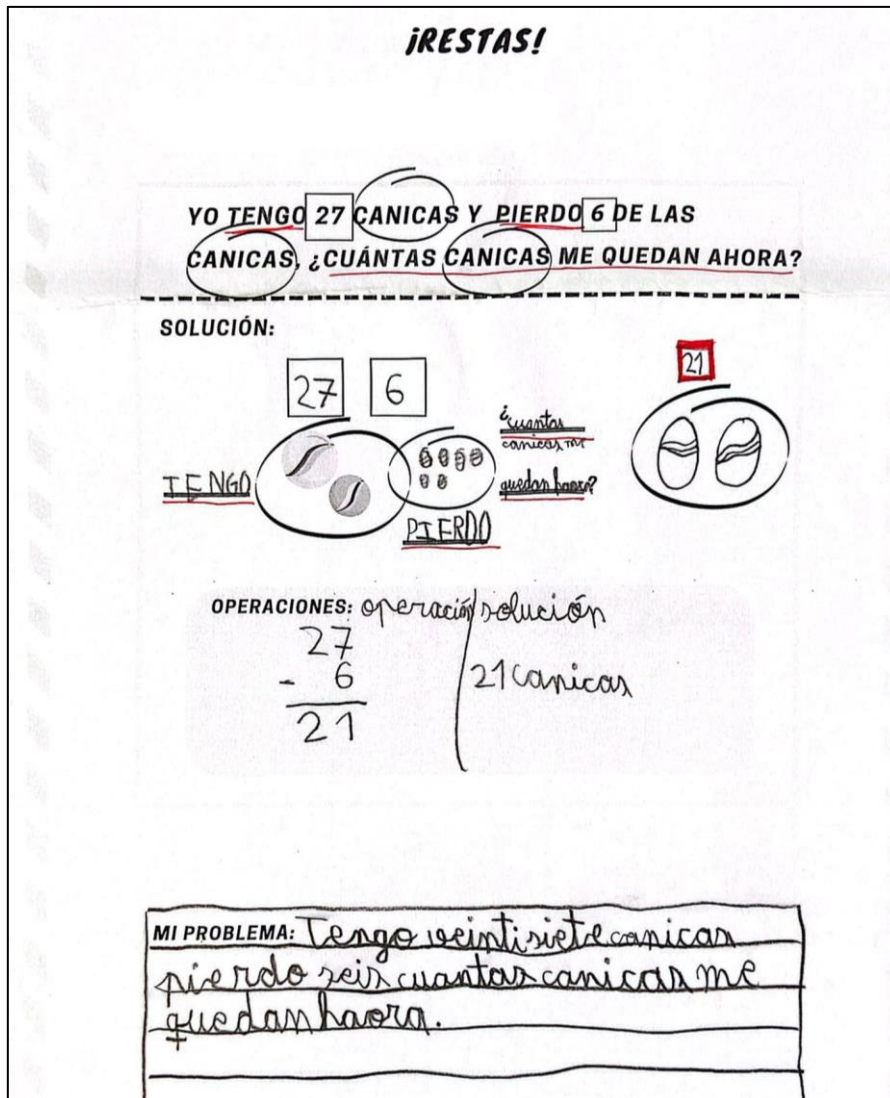 ¡RESTAS!
YO TENGO 27 CANICAS Y PIERDO 6 DE LAS
CANICAS, ¿CUÁNTAS CANICAS ME QUEDAN AHORA?
SOLUCIÓN:
27 6
21
TENGO
PIERDO
¿cuantas
canicas me
quedan haora?
OPERACIONES: operación solución
27
- 6
21
21 canicas
MI PROBLEMA: Tengo veintisiete canicas
pierdo seis cuantas canicas me
quedan haora.